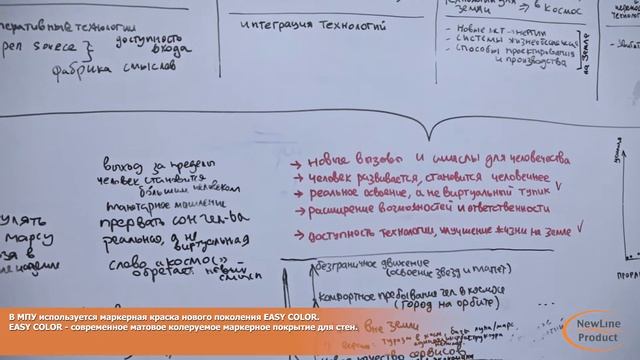 перативные технологии
доступность
входа
фабрика смыслов
интеграция технологий
земли → в космос
- Новые
- Системы жизнеобеспечения
- Способы проектирования
и производства
на Земле
выход за пределы
человек становится
большим человеком
планетарное мышление
прервать сон чел-ва
реальная, а не
виртуальная
слово «космос»
обретает новый
смысл
улять
марсу
→ Новые вызовы и смыслы для человечества
→ человек развивается, становится человечнее
→ реальное освоение, а не виртуальный тупик ✓
→ расширение возможностей и ответственности
→ доступность технологии, улучшение жизни на земле ✓
безграничное движение
(освоение звезд и планет)
комфортное пребывание чел. в космосе
(город на орбите)
вне Земли
качество сервисов
В МПУ используется маркерная краска нового поколения EASY COLOR.
EASY COLOR - современное матовое колеруемое маркерное покрытие для стен.
NewLine
Product